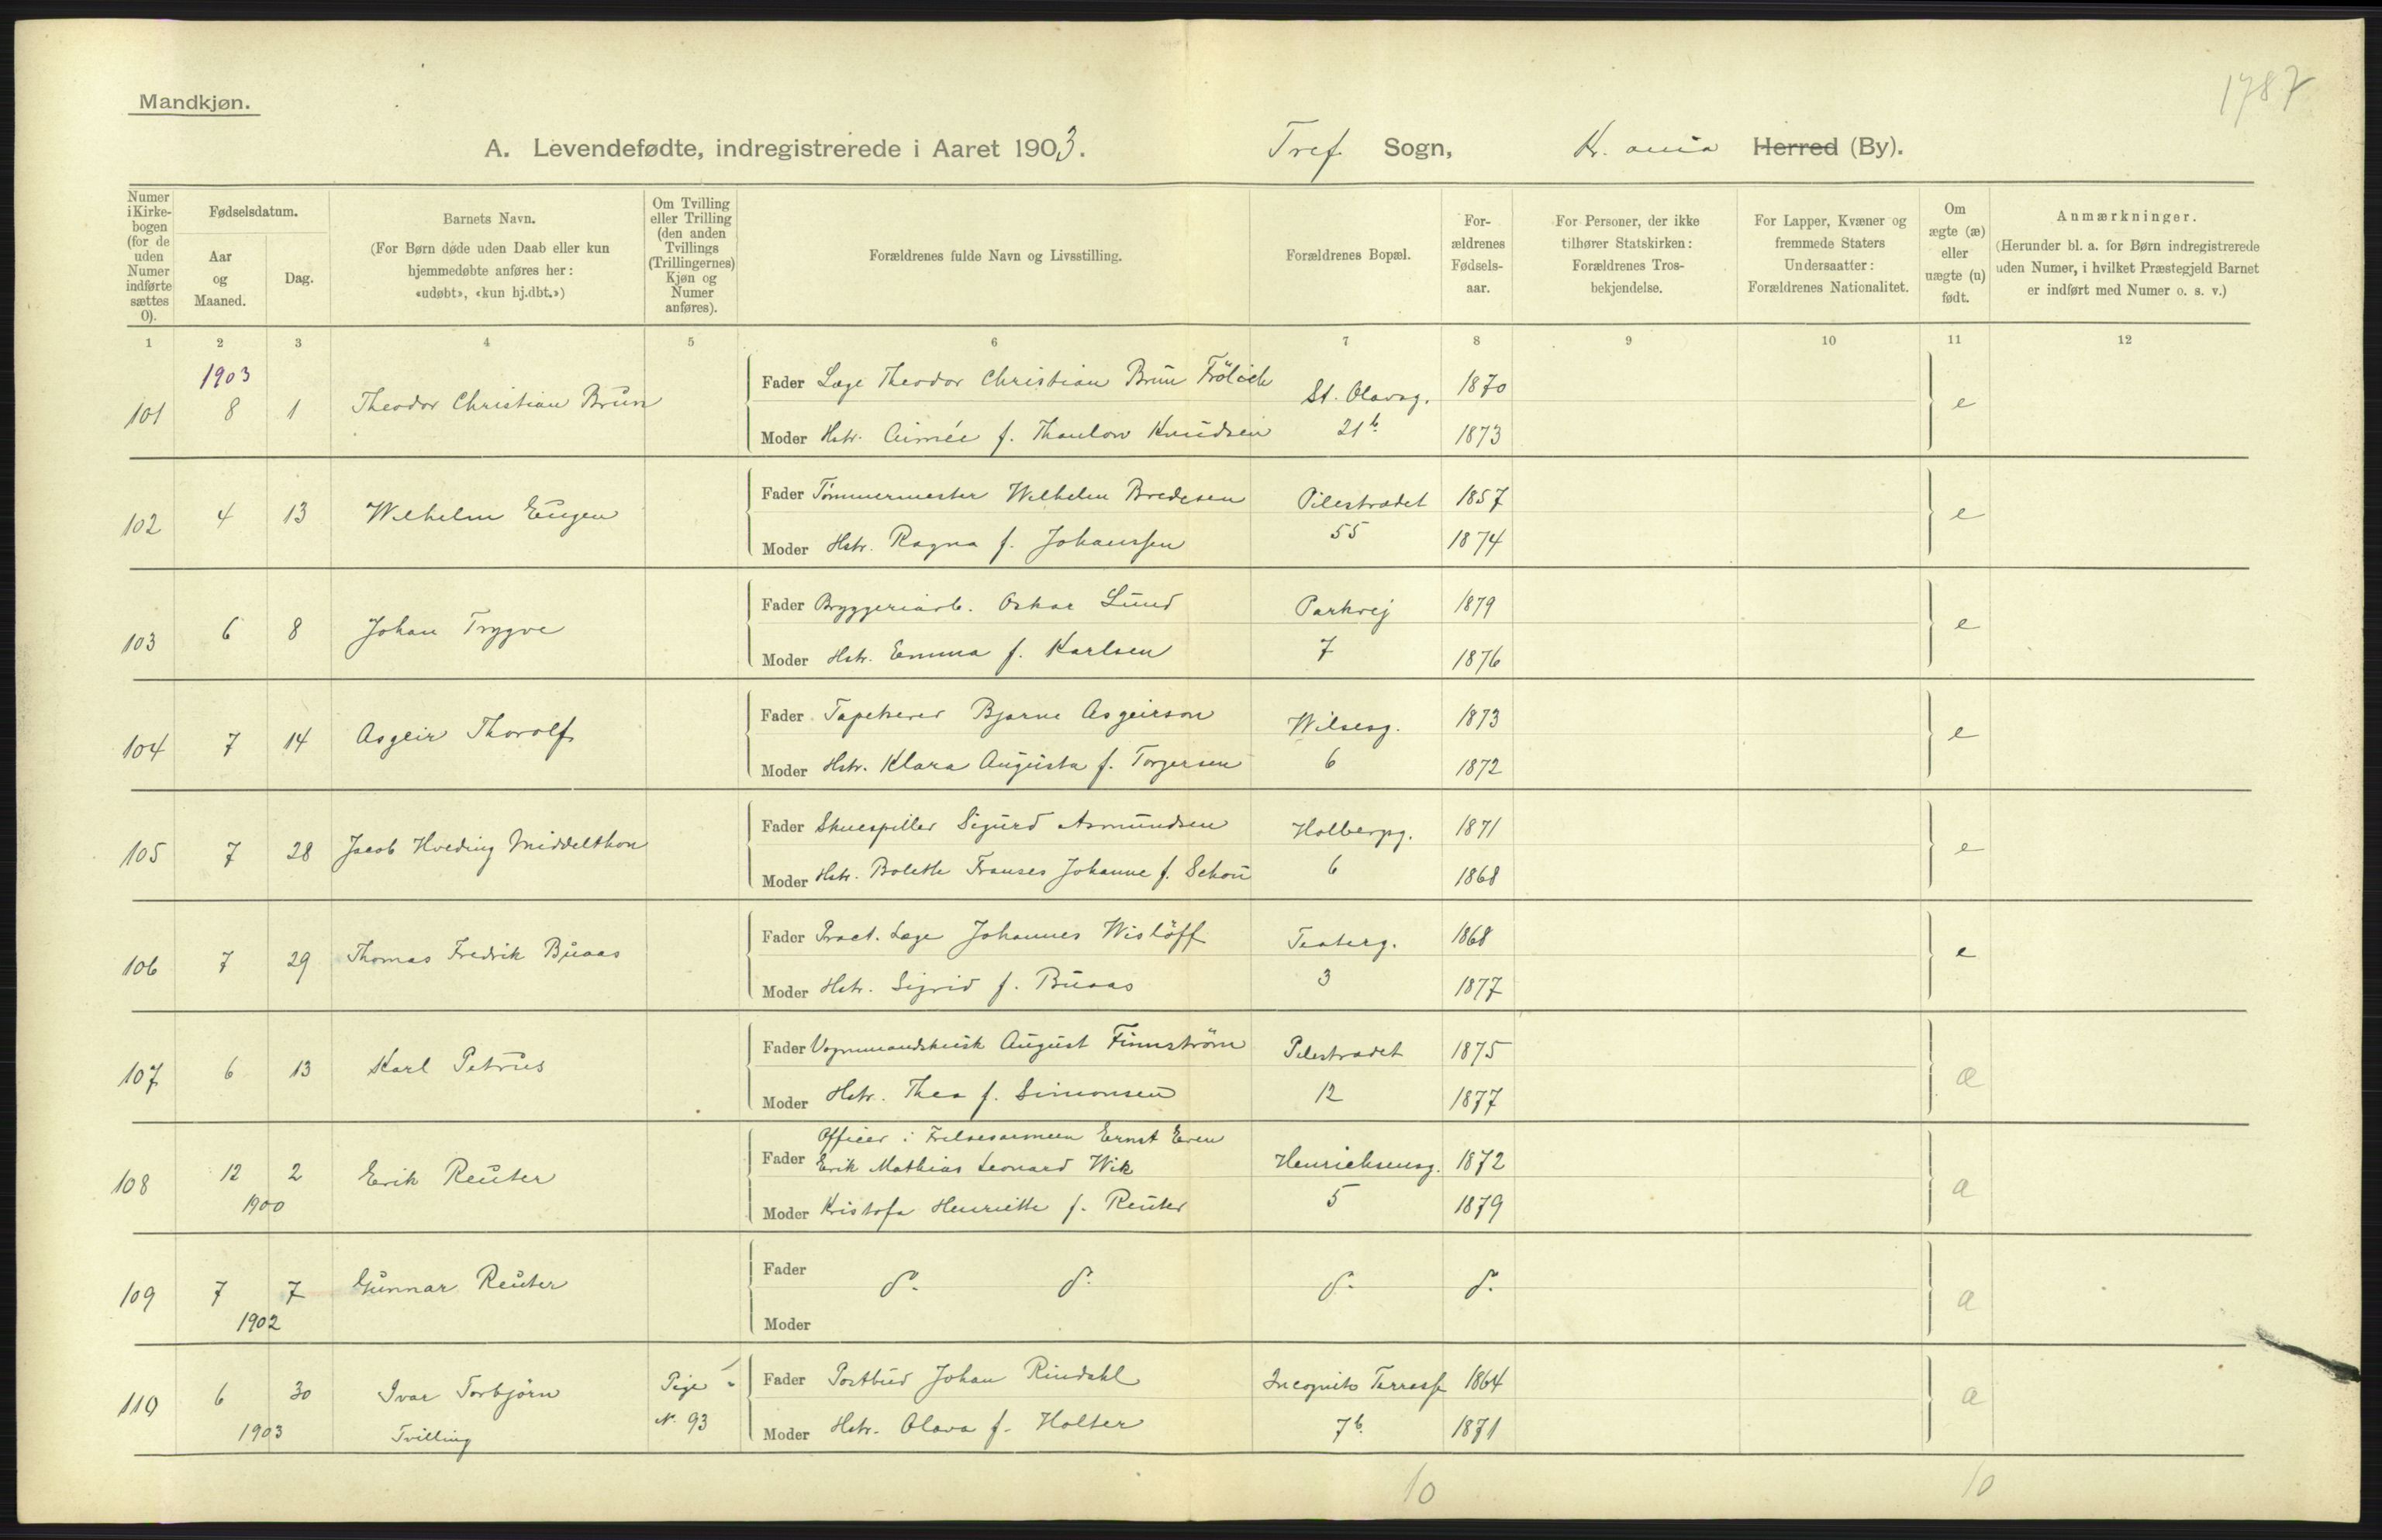 1787
Mandkjøn.
A. Levendefødte, indregistrerede i Aaret 1903. Tref. Sogn, Kr. ania Herred (By).
Numer i Kirkebogen (for de uden Numer indførte sættes 0).
Fødselsdatum.
Aar og Maaned.
Dag.
Barnets Navn.
(For Børn døde uden Daab eller kun hjemmedøbte anføres her: «udøbt», «kun hj.dbt.»)
Om Tvilling eller Trilling (den anden Tvillings (Trillingernes) Kjøn og Numer anføres).
Forældrenes fulde Navn og Livsstilling.
Forældrenes Bopæl.
Forældrenes Fødselsaar.
For Personer, der ikke tilhører Statskirken: Forældrenes Trosbekjendelse.
For Lapper, Kvæner og fremmede Staters Undersaatter: Forældrenes Nationalitet.
Om ægte (æ) eller uægte (u) født.
Anmærkninger.
(Herunder bl. a. for Børn indregistrerede uden Numer, i hvilket Præstegjeld Barnet er indført med Numer o. s. v.)
1 2 3 4 5 6 7 8 9 10 11 12
1903
101 8 1 Theodor Christian Brun
Fader Læge Theodor Christian Brun Frölich St. Olavsg. 1870 e
Moder Hstr. Aimée f. Thaulow Knudsen 21b. 1873
102 4 13 Wilhelm Eugen
Fader Tømmermester Wilhelm Bredesen Pilestrædet 1857 e
Moder Hstr. Ragna f. Johanssen 55 1874
103 6 8 Johan Trygve
Fader Bryggeriarb. Oskar Lund Parkvej 1879 e
Moder Hstr. Emma f. Karlsen 7 1876
104 7 14 Asgeir Thorolf
Fader Tapetserer Bjarne Asgeirson Wilsesg. 1873 e
Moder Hstr. Klara Augusta f. Torgersen 6 1872
105 7 28 Jacob Hveding Middelthon
Fader Skuespiller Sigurd Asmundsen Holbergg. 1871 e
Moder Hstr. Bolette Franses Johanne f. Schou 6 1868
106 7 29 Thomas Fredrik Buaas
Fader Pract. Læge Johannes Wislöff Teaterg. 1868 e
Moder Hstr. Sigrid f. Buaas 3 1877
107 6 13 Karl Petrus
Fader Vognmandskusk August Finnström Pilestrædet 1875 a
Moder Hstr. Thea f. Simonsen 12 1877
108 12 2 Erik Reuter
1900
Officer i Frelsesarmeen Ernst Even
Fader Erik Mathias Leonard Wik Henrichsensg. 1872 a
Moder Kristofa Henriette f. Reuter 5 1879
109 7 7 Gunnar Reuter
1902
Fader d. d. d. d. a
Moder
110 6 30 Ivar Torbjørn Pige
1903 Tvilling N. 93
Fader Postbud Johan Rindahl Incognito Terrasse 1864 a
Moder Hstr. Olava f. Holter 7b. 1871
10 10